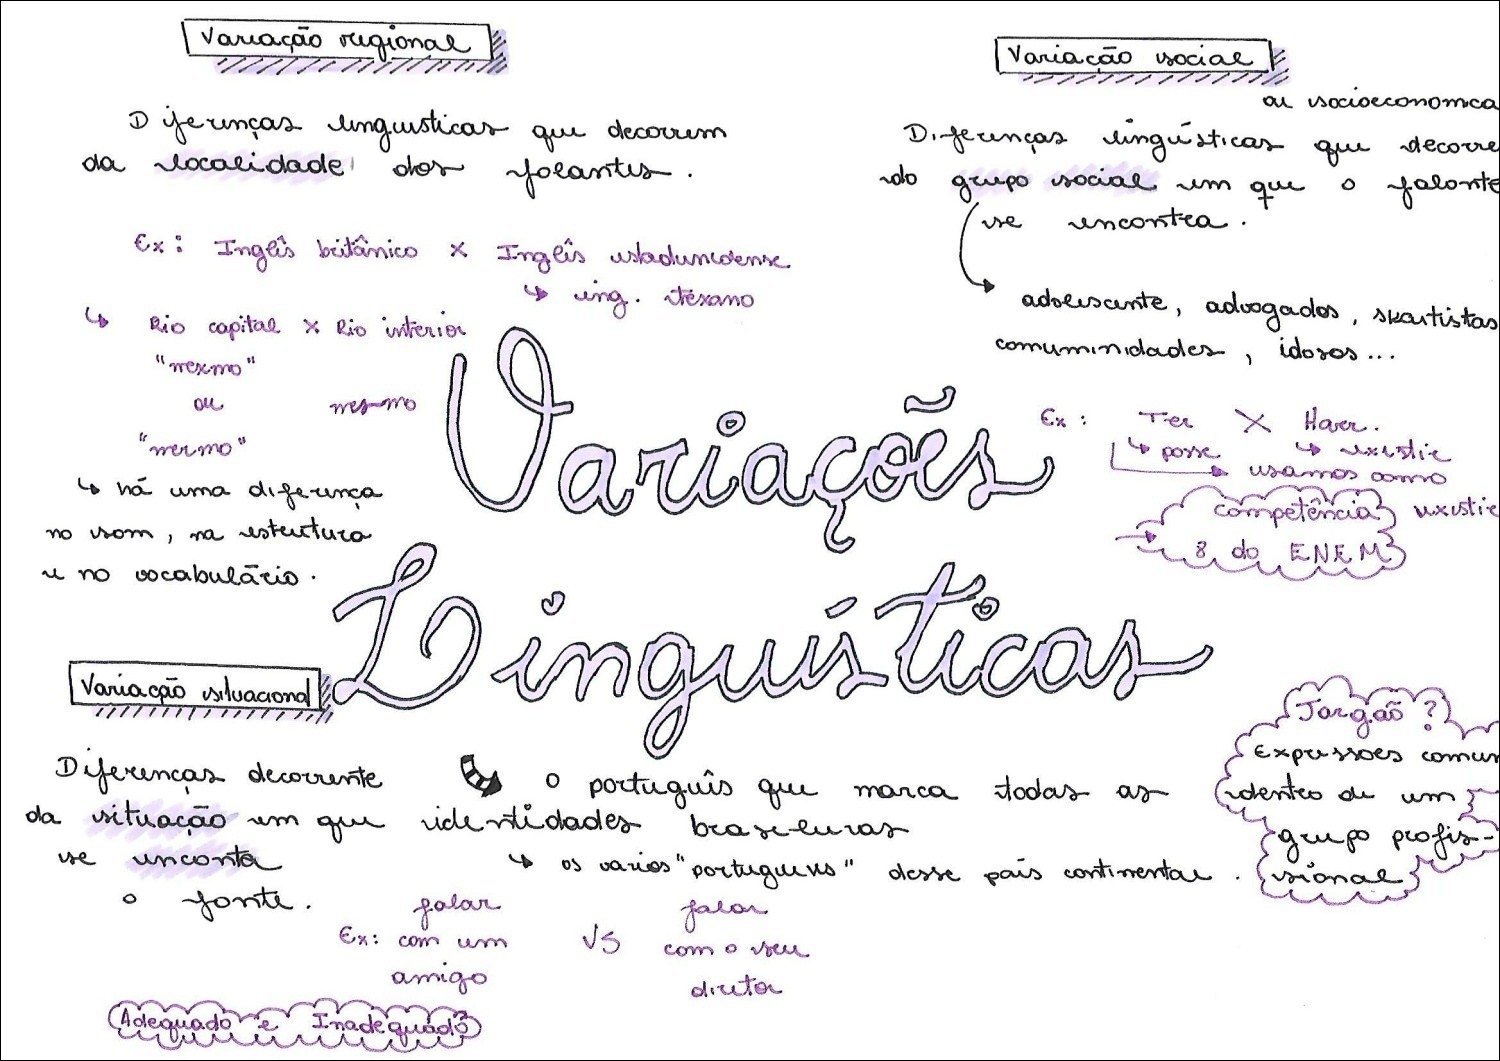 Variação regional
Diferenças linguisticas que decorrem
da localidade dos falantes.
Ex: Inglês britânico x Inglês estadunidense
↳ ing. texano
↳ Rio capital x Rio interior
"mexmo"
ou mesmo
"mermo"
↳ há uma diferença
no som, na estrutura
e no vocabulário.
Variação social
ou socioeconomica
Diferenças lingüisticas que decorre
do grupo social em que o falante
se encontra.
adolescente, advogados, skatistas
comuminidades, idosos...
Ex: Ter X Haver.
↳ posse ↳ existir
usamos como
existir
Competência
8 do ENEM
Variações
Linguísticas
Variação situacional
Diferenças decorrente
da situação em que
se enconta
o fonte.
Ex: falar
com um
amigo
VS
falar
com o seu
diretor
Adequado e Inadequado?
o português que marca todas as
identidades brasileiras
↳ os varios "portugueses" desse país continental.
Jargão?
Expressoes comun
dentro de um
grupo profis-
sional